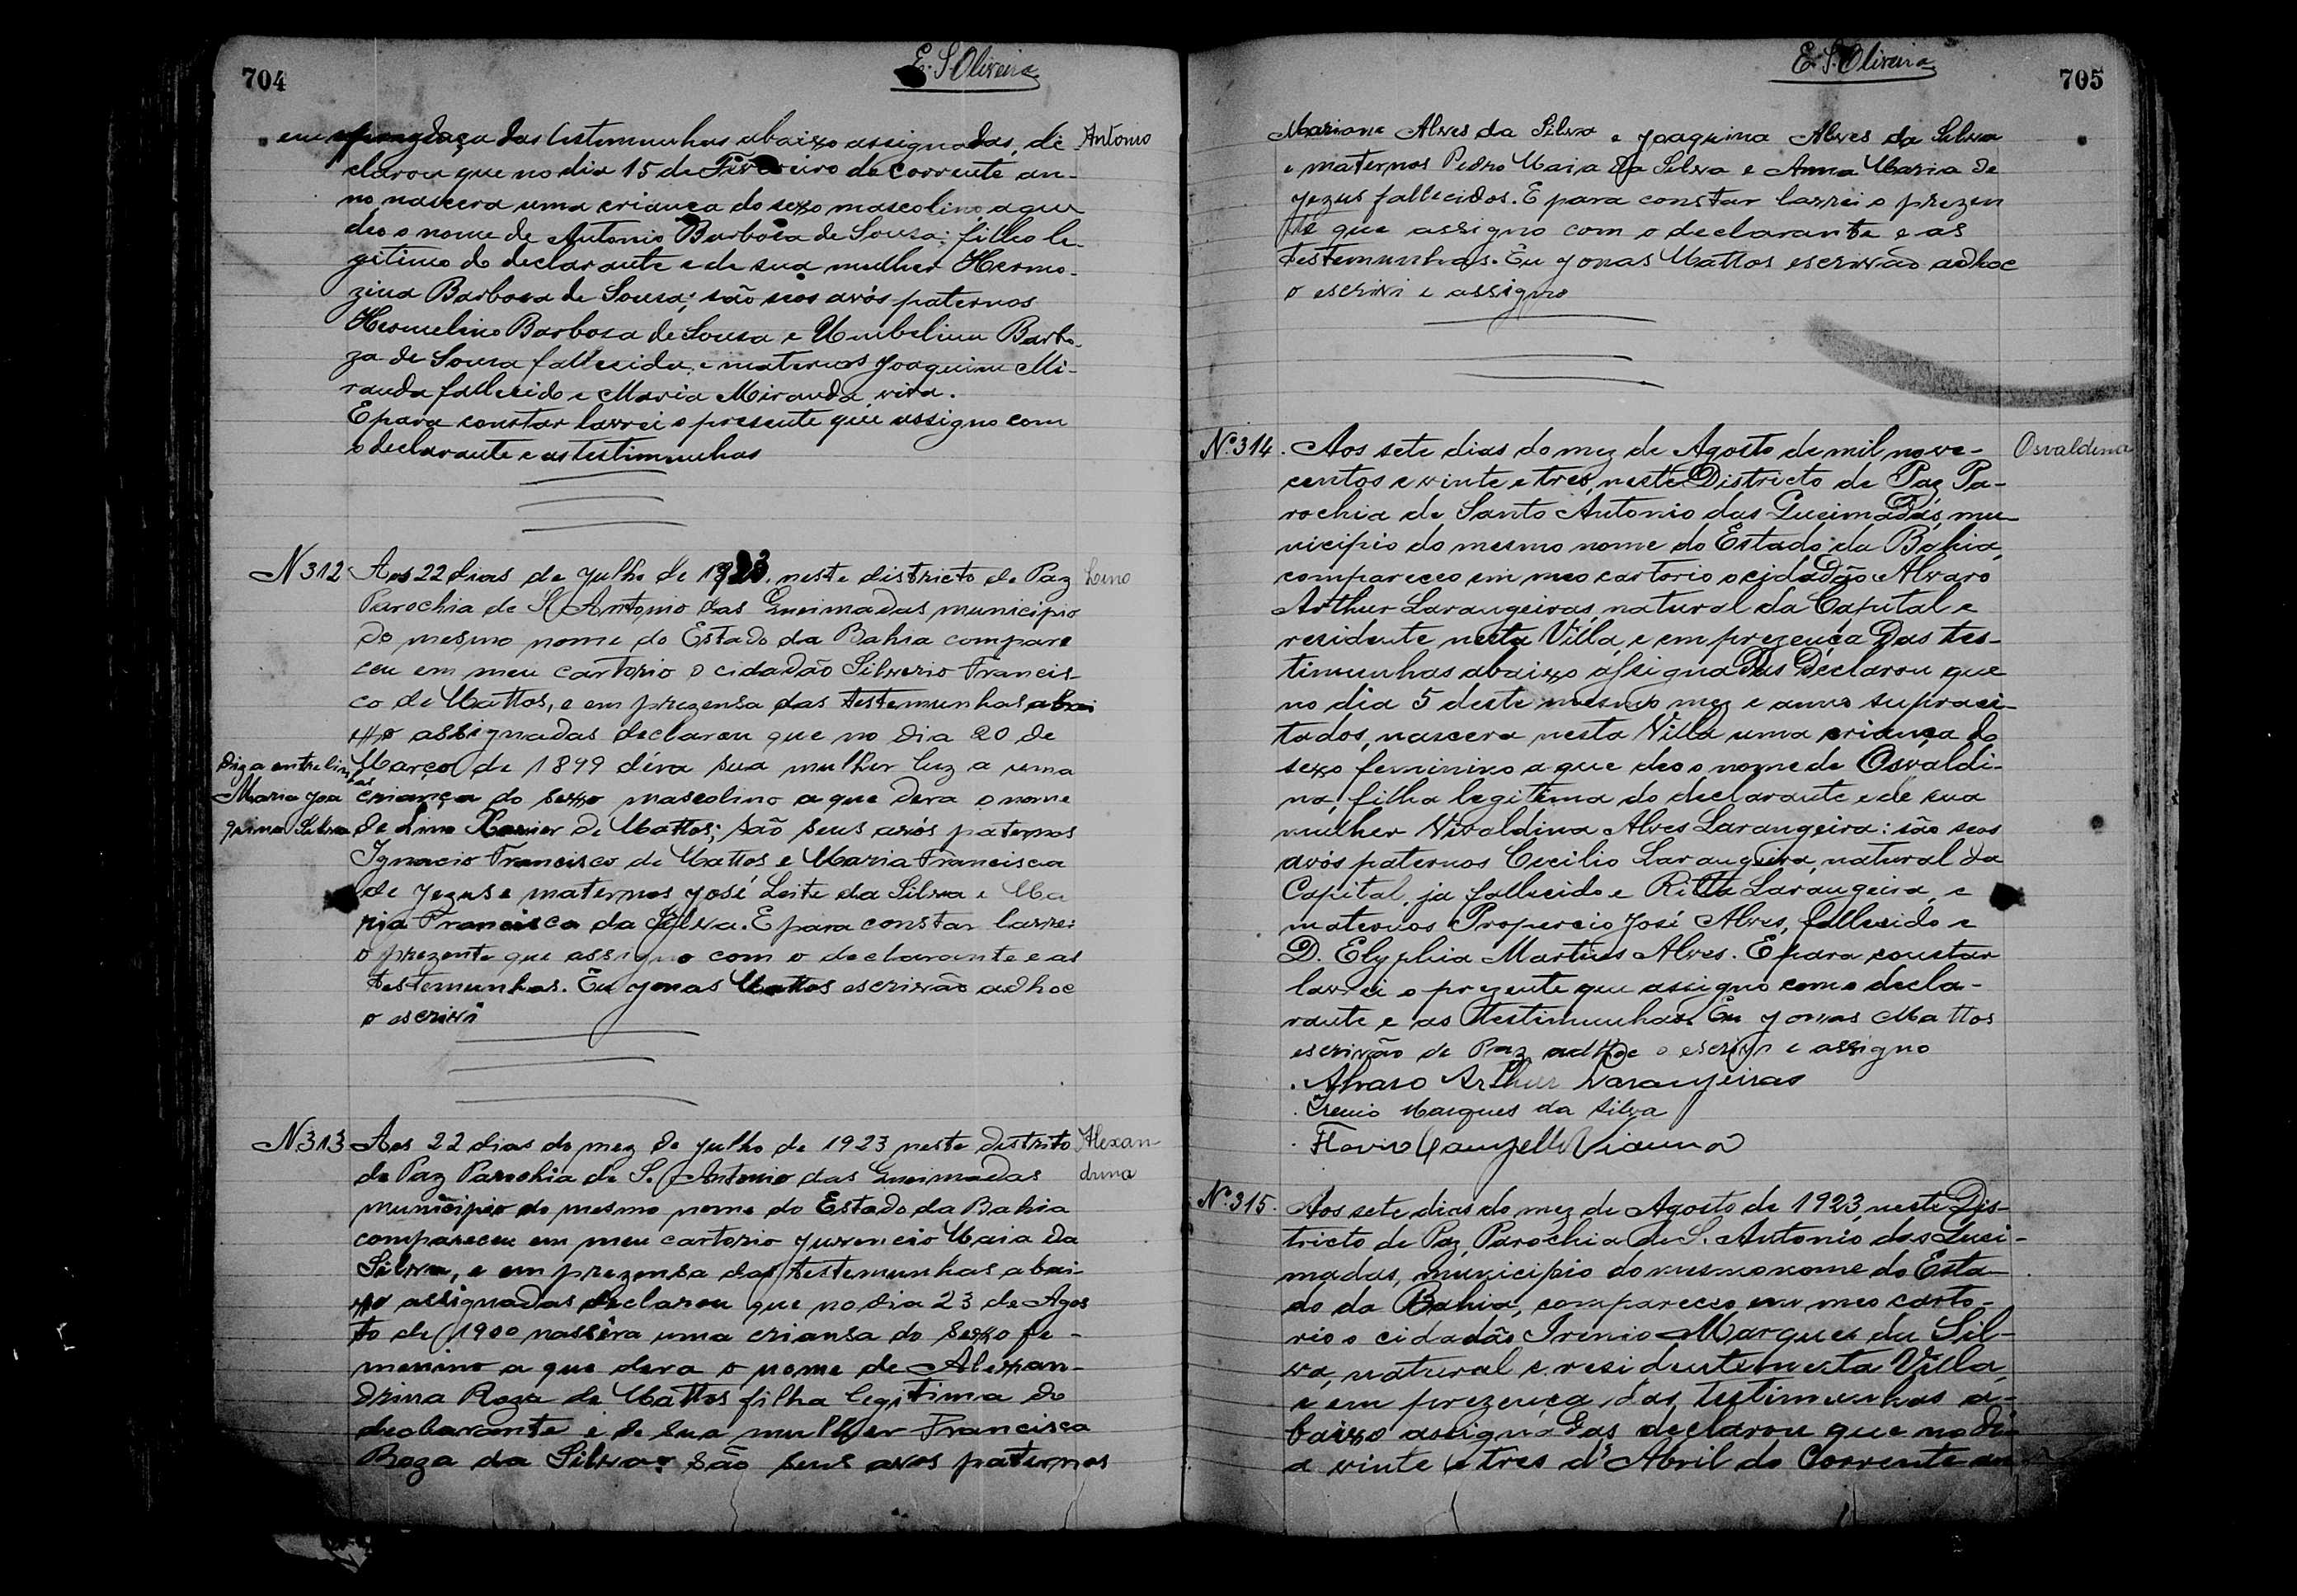 704
E. S. Oliveira
em prezença das testimunhas abaixo assignadas, de
Antonio
clarou que no dia 15 de Fevereiro de corrente an-
no, nascera uma criança do sexo mascolino, a que
deo o nome de Antonio Barboza de Sousa; filho le-
gitimo do declarante e de sua mulher Hermo-
zina Barbosa de Sousa; são seos avós paternos
Hermelino Barbosa de Sousa e Umbelina Barbo-
za de Sousa fallecida, e maternos Joaquim Mi-
randa fallecido e Maria Miranda, viva.
E para constar lavrei o presente que assigno com
o declarante e as testimunhas
N 312
Aos 22 dias de Julho de 1923, neste districto de Paz
Lino
Parochia de S. Antonio das Queimadas municipio
do mesmo nome do Estado da Bahia compare
ceu em meu cartorio o cidadão Silverio Francis-
co de Mattos, e em prezensa das testemunhas abai
xo assignadas declarou que no dia 20 de
Março de 1899 déra sua mulher luz a uma
Diz a entrelinhas
Maria Joa
quina Silva
criança do sexo mascolino a que dera o nome
de Lino Xavier de Mattos; são seus avós paternos
Ignacio Francisco de Mattos e Maria Francisca
de Jezus e maternos José Leite da Silva e Ma
ria Francisca da Silva. E para constar lavrei
o prezente que assigno com o declarante e as
testemunhas. Eu Jonas Mattos escrivão adhoc
o escrivi
N. 313
Aos 22 dias do mez de Julho de 1923 neste distrito
Alexan-
drina
de Paz Parochia de S. Antonio das Queimadas
municipio do mesmo nome do Estado da Bahia
compareceu em meu cartorio Juvencio Maia da
Silva, e em prezensa das testemunhas abai-
xo assignadas declarou que no dia 23 de Agos
to de 1900 nassêra uma criansa do sexo fe-
menino a que dera o nome de Alexan-
drina Roza de Mattos filha legitima do
declarante e de sua mulher Francisca
Roza da Silva: são seus avos paternos
E. S. Oliveira
705
Mariano Alves da Silva e Joaquina Alves da Silva
e maternos Pedro Maia da Silva e Anna Maria de
Jezus fallecidos. E para constar lavrei o prezen
te que assigno com o declarante e as
testemunhas. Eu Jonas Mattos escrivão adhoc
o escrivi e assigno
Nº 314.
Aos sete dias do mez de Agosto de mil nove-
Osvaldina
centos e vinte e tres, neste Districto de Paz Pa-
rochia de Santo Antonio das Queimadas, mu-
nicipio do mesmo nome do Estado da Bahia,
compareceo em meo cartorio o cidadão Alvaro
Arthur Larangeiras, natural da Capital e
residente nesta Villa, e em prezença das tes-
timunhas abaixo assignadas declarou que
no dia 5 deste mesmo mez e anno supraci-
tados, nascera nesta Villa uma criança do
sexo feminino a que deo o nome de Osvaldi-
na, filha legitima do declarante e de sua
mulher Nivaldina Alves Larangeira: são seos
avós paternos Cecilio Larangeira, natural da
Capital, ja fallecido e Ritta Larangeira, e
maternos Propercio José Alves, fallecido e
D. Elyphia Martins Alves. E para constar
lavrei o prezente que assigno com o decla-
rante e as testimunhas. Eu Jonas Mattos
escrivão de Paz adhoc o escrivi e assigno
Alvaro Arthur Larangeiras
Irenio Marques da Silva
Flavio Vianna
Nº 315.
Aos sete dias do mez de Agosto de 1923, neste Dis-
tricto de Paz, Parochia de S. Antonio das Quei-
madas, municipio do mesmo nome do Esta-
do da Bahia, compareceo em meo carto-
rio o cidadão Irenio Marques da Sil-
va, natural e residente nesta Villa,
e em prezença das testimunhas a-
baixo assignadas declarou que no di-
a vinte e tres d'Abril do Corrente an